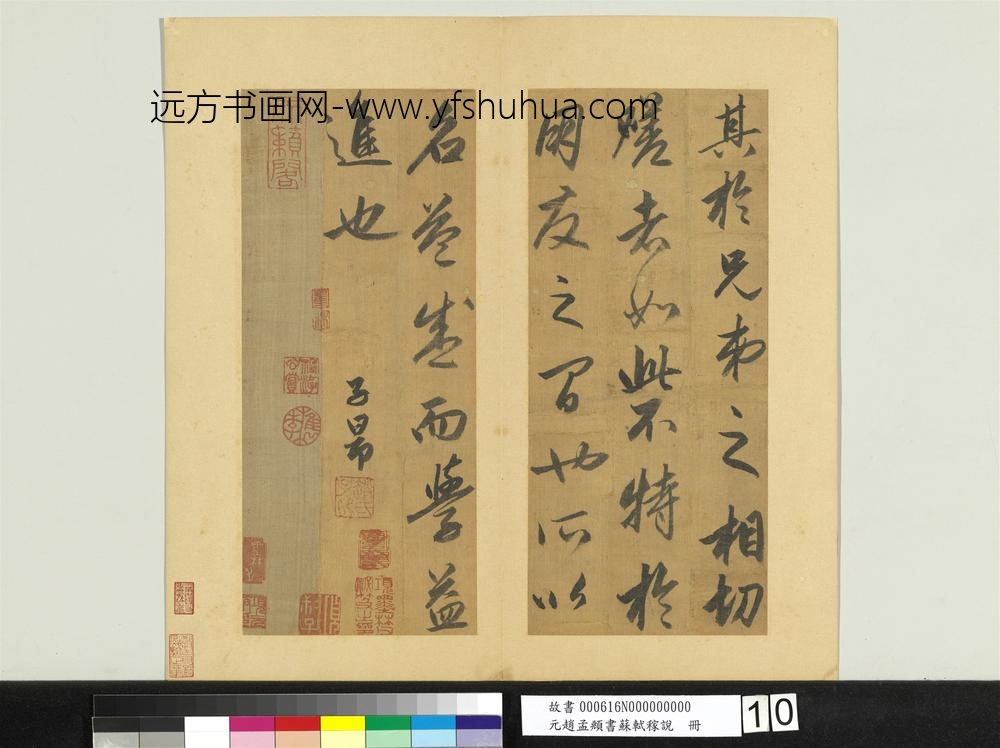 远方书画网-www.yfshuhua.com
其於兄弟之相切
磋者如此不特於
朋友之間也所以
名益盛而學益
進也
子昂
故書 000616N000000000
元趙孟頫書蘇軾稼說 冊
10